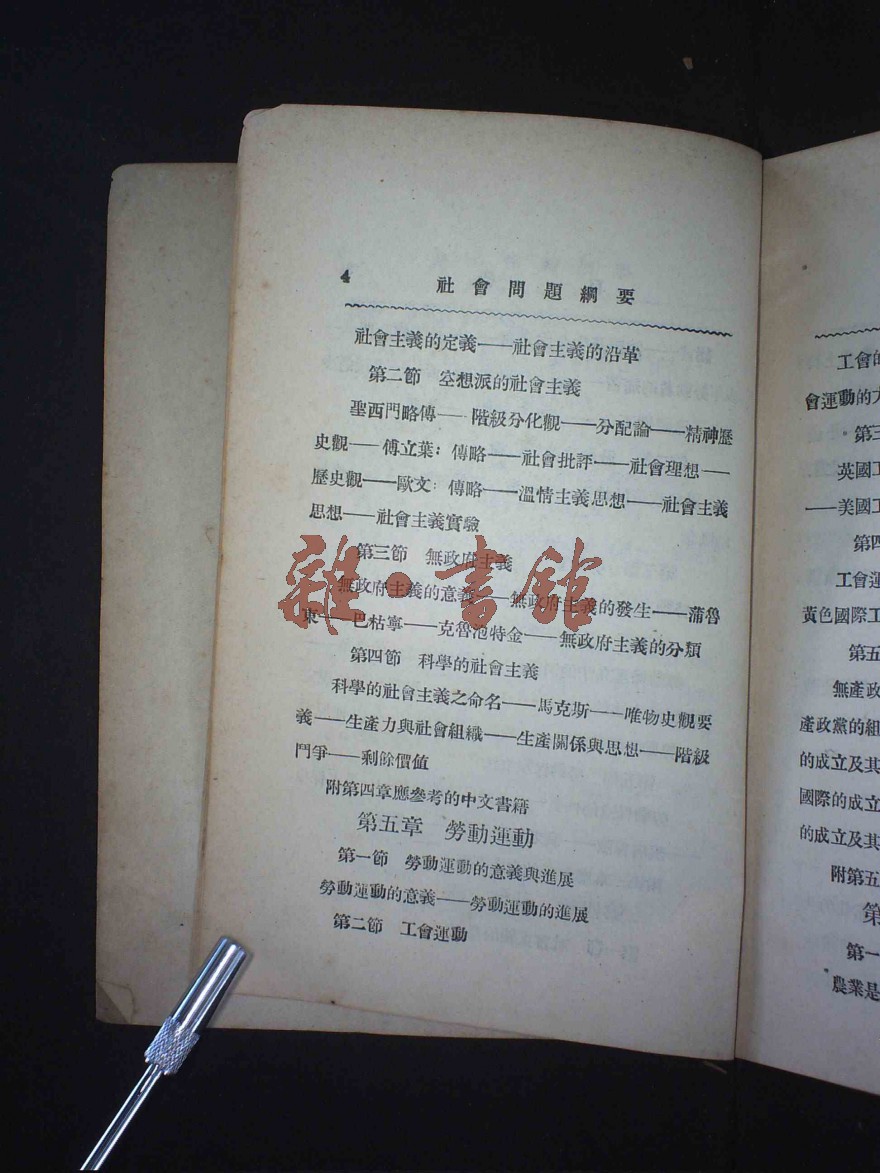 4 社會問題綱要
社會主義的定義——社會主義的沿革
第二節 空想派的社會主義
聖西門略傳——階級分化觀——分配論——精神歷
史觀——傅立葉：傳略——社會批評——社會理想——
歷史觀——歐文：傳略——溫情主義思想——社會主義
思想——社會主義實驗
第三節 無政府主義
無政府主義的意義——無政府主義的發生——蒲魯
東——巴枯寧——克魯泡特金——無政府主義的分類
第四節 科學的社會主義
科學的社會主義之命名——馬克斯——唯物史觀要
義——生產力與社會組織——生產關係與思想——階級
鬥爭——剩餘價值
附第四章應參考的中文書籍
第五章 勞動運動
第一節 勞動運動的意義與進展
勞動運動的意義——勞動運動的進展
第二節 工會運動
雜·書館
工會的
會運動的
第三
英國工
——美國工
第四
工會運
黃色國際工
第五
無產政
產政黨的組
的成立及其
國際的成立
的成立及其
附第五
第
第一
農業是